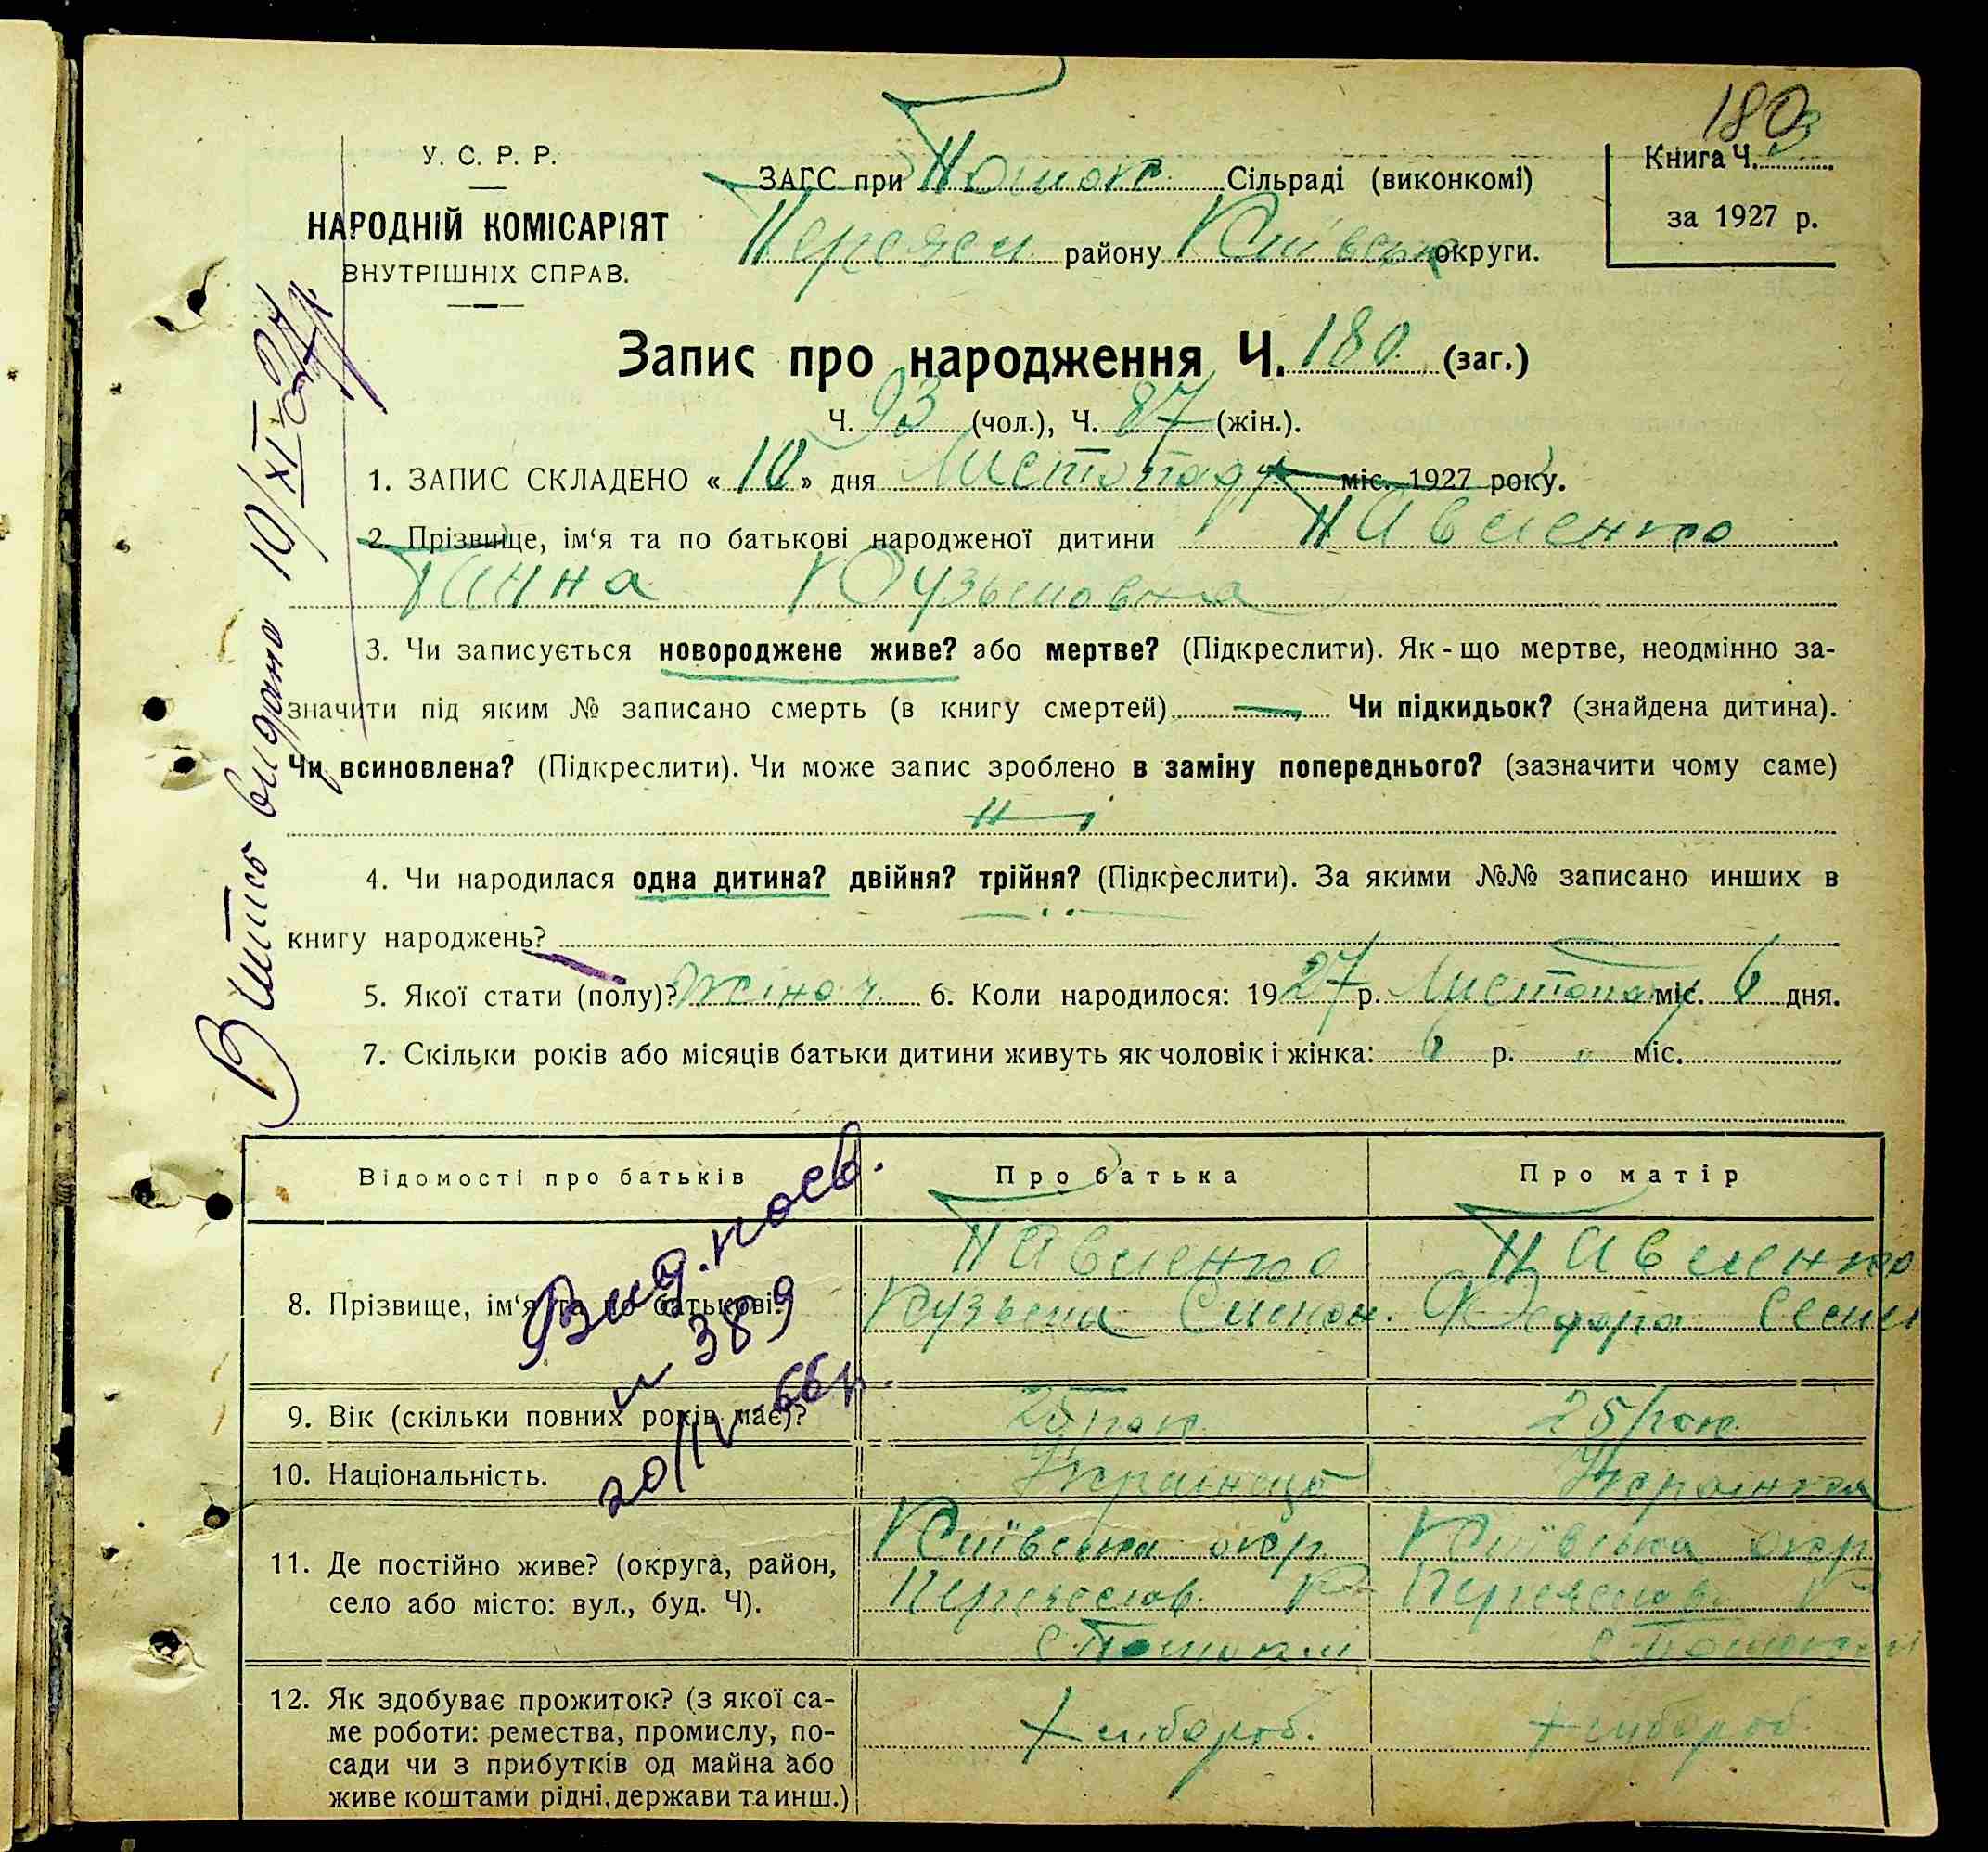 180
У. С. Р. Р.
НАРОДНІЙ КОМІСАРІЯТ
ВНУТРІШНІХ СПРАВ.
ЗАГС при Пошок. Сільраді (виконкомі)
Переясл. району Київськ округи.
Книга Ч. 3
за 1927 р.
Запис про народження Ч. 180 (заг.)
Ч. 93 (чол.), Ч. 87 (жін.).
1. ЗАПИС СКЛАДЕНО « 10 » дня Листопаду міс. 1927 року.
2. Прізвище, ім‘я та по батькові народженої дитини Павленко
Ганна Кузьмовна
3. Чи записується новороджене живе? або мертве? (Підкреслити). Як-що мертве, неодмінно за-
значити під яким № записано смерть (в книгу смертей) — Чи підкидьок? (знайдена дитина).
Чи всиновлена? (Підкреслити). Чи може запис зроблено в заміну попереднього? (зазначити чому саме)
Ні
4. Чи народилася одна дитина? двійня? трійня? (Підкреслити). За якими №№ записано инших в
книгу народжень?
5. Якої стати (полу)? жіноч. 6. Коли народилося: 1927 р. Листопаду міс. 6 дня.
7. Скільки років або місяців батьки дитини живуть як чоловік і жінка: 6 р. „ міс.
Витяг видано 10/XI 27 р.
Відомості про батьків
Про батька
Про матір
8. Прізвище, ім‘я та по батькові.
Павленко
Кузьма Симон.
Павленко
Федора Семен
Вид. посв.
№ 389
20/IV-66 р.
9. Вік (скільки повних років має)?
25 рок.
25 рок.
10. Національність.
Українець
Українка
11. Де постійно живе? (округа, район,
село або місто: вул., буд. Ч).
Київська окр
Переяслав. Р-
с. Пошоки
Київська окр
Переяслав. Р-
с. Пошоки
12. Як здобуває прожиток? (з якої са-
ме роботи: ремества, промислу, по-
сади чи з прибутків од майна або
живе коштами рідні, держави та инш.)
Хлібороб.
Хлібороб.